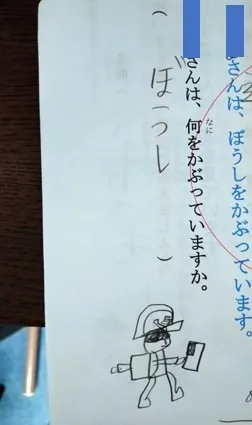 さんは、ぼうしをかぶっています。
さんは、何をかぶっていますか。
なに
（ぼうし）